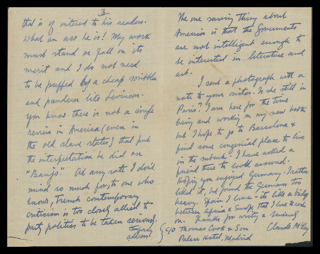 3
that is of interest to his readers.
What an ass he is! My work
must stand or fall on its
merit and I do not need
to be puffed by a cheap scribbler
and panderer like Levinson.
You know there is not a single
review in America (even in
the old slave states) that put
the interpretation he did on
"Banjo" At any rate I don't
mind so much for, to one who
knows, French contemporary
criticism is too closely allied to
party politics to be taken seriously.
The one saving thing about
America is that the Governments
are not intelligent enough to
be interested in literature and
art.
I send a photograph with a
note to your sister. Is she still in
Paris? I am here for the time
being and working on my new book
but I hope to go to Barcelona &
find some congenial place to live
in the suburbs. I have asked a
friend there to look around.
Hope you enjoyed Germany. I rather
liked it, but found the Germans too
heavy. Spain I love - its like a bridge
between Africa & Europe that I have to work
on. Thanks for writing
Claude McKay
c/o Thomas Cook & Son
Palace Hotel, Madrid